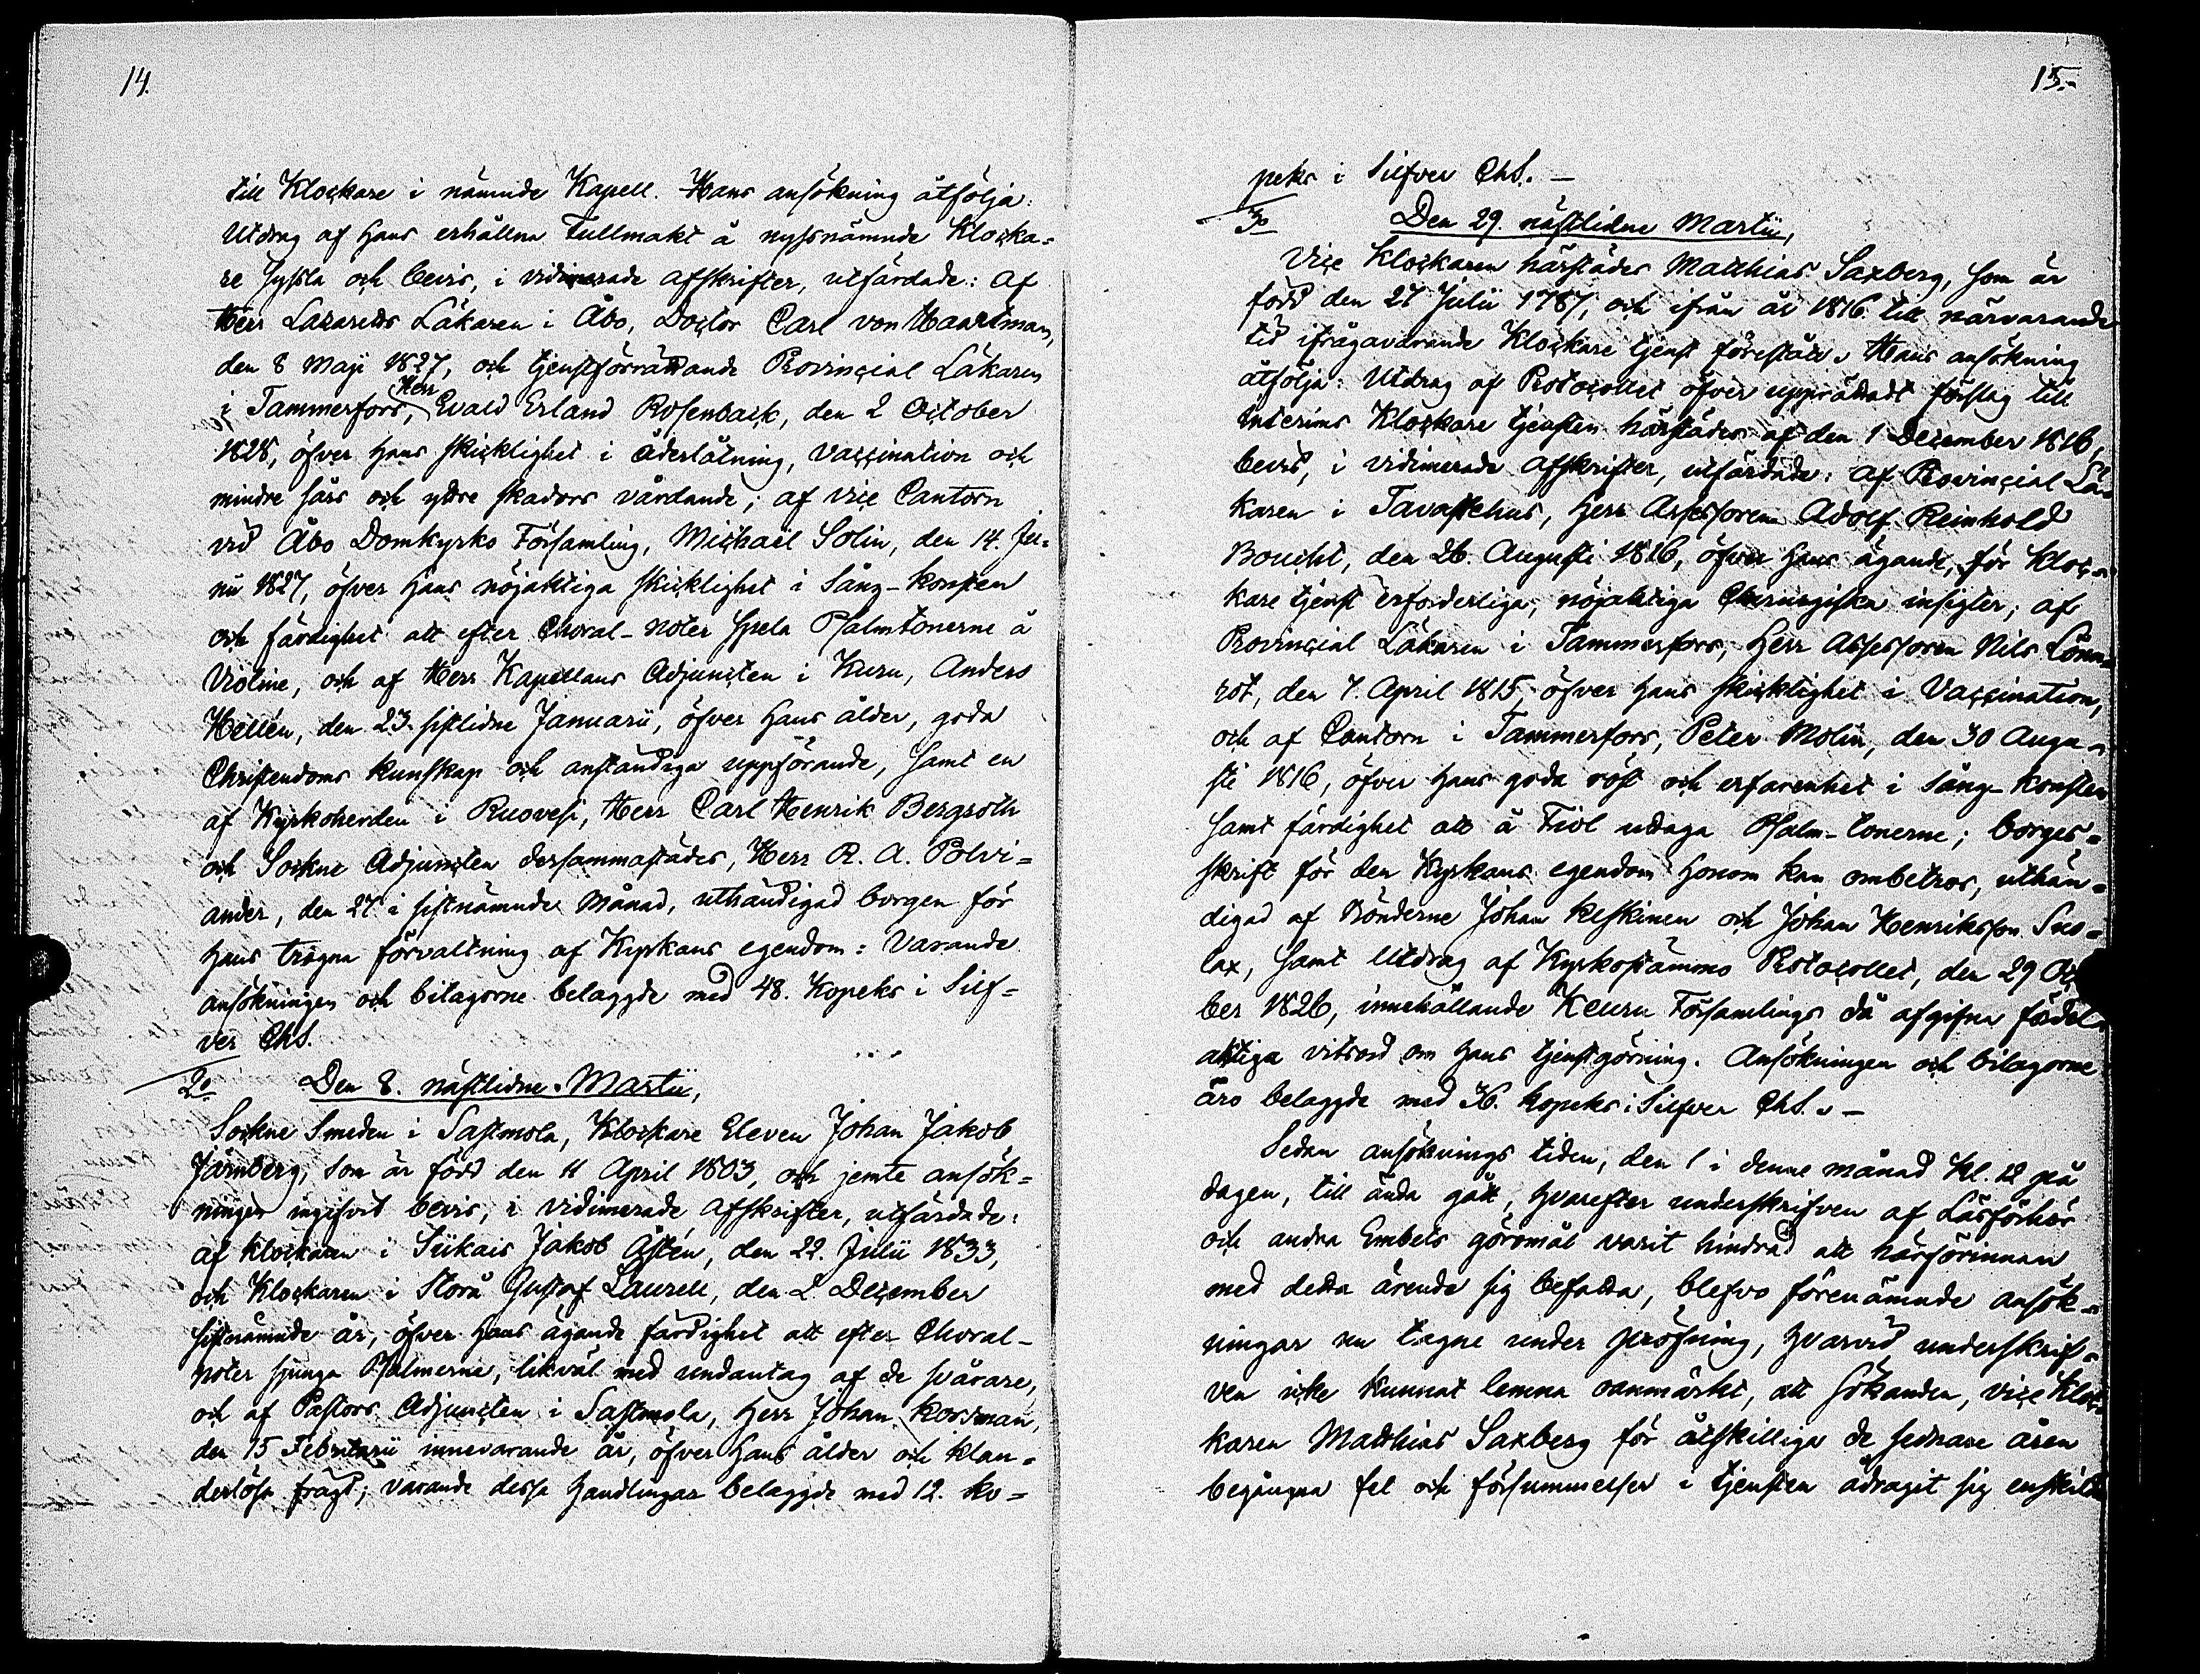 14.
till Klockare i nämnde Kapell. Hans ansökning åtfölja:
Utdrag af Hans erhållna Fullmakt å nyssnämnde Klocka=
re syssla och bevis, i vidimerade afskrifter, utfärdade: af
Herr Lazaretts Läkaren i Åbo, Doctor Carl von Haartman,
den 8 Maji 1827, och tjenstförrättande Provincial Läkaren
i Tammerfors, Herr Evald Erland Rosenback, den 2 October
1828, öfver Hans skicklighet i åderlåtning, Vaccination och
mindre sårs och yttre skadors vårdande; af vice Cantorn
vid Åbo Domkyrko Församling, Michaël Solin, den 14. Ju=
nii 1827, öfver Hans nöjaktiga skicklighet i Sång-konsten
och färdighet att efter Choral-noter spela Psalmtonerne å
Violine, och af Herr Kapellans Adjuncten i Kuru, Anders
Hellén, den 23. sistlidne Januarii, öfver Hans ålder, goda
Christendoms kunskap och anständiga uppförande, samt en
af Kyrkoherden i Ruovesi, Herr Carl Henrik Bergroth
och Sockne Adjuncten dersammastädes, Herr R. A. Polvi=
ander, den 27 i sistnämnde Månad, uthändigad borgen för
Hans trogna förvaltning af Kyrkans egendom: Varande
ansökningen och bilagorne belaggde med 48. Kopeks i Silf=
ver ChS.
2º Den 8. nästlidne Martii,
Sockne Smeden i Sastmola, Klockare Eleven Johan Jakob
Järnberg, som är född den 11 April 1803, och jemte ansök=
ningen ingifvit bevis, i vidimerade afskrifter, utfärdade:
af Klockaren i Siikais Jakob Astén, den 22. Julii 1833,
och Klockaren i Storå Gustaf Laurell, den 2. December
sistnämnde år, öfver Hans ägande färdighet att efter Choral-
noter sjunga Psalmerne, likväl med undantag af de svårare,
och af Pastors Adjuncten i Sastmola, Herr Johan Korsman,
den 15 Februarii innevarande år, öfver Hans ålder och klan=
derlösa frägd; varande dessa Handlingar belaggde med 12. ko=
15.
peks i Silfver ChS. –
3º Den 29. nästlidne Martii,
Vice Klockaren härstädes Matthias Saxberg, som är
född den 27 Julii 1787, och ifrån år 1816 till närvarande
tid ifrågavarande Klockare tjenst förestått. Hans ansökning
åtfölja: Utdrag af Protocollet öfver upprättadt förslag till
interims Klockare tjensten härstädes af den 1 December 1816,
bevis, i vidimerade afskrifter, utfärdade: af Provincial Lä=
karen i Tavastehus, Herr Assessoren Adolf Reinhold
Boucht, den 26. Augusti 1816, öfver Hans ägande, för kloc=
kare tjenst erforderliga, nöjaktiga Chirurgiska insigter; af
Provincial Läkaren i Tammerfors, Herr Assessoren Nils Lönn=
rot, den 7. April 1815, öfver Hans skicklighet i Vaccination,
och af Cantorn i Tammerfors, Peter Molin, den 30 Augu=
sti 1816, öfver Hans goda röst och erfarenhet i Sång-konsten
samt färdighet att å Fiol uttaga Psalm-tonerne; borges=
skrift för den Kyrkans egendom Honom kan ombetros, uthän=
digad af Bönderne Johan Keskinen och Johan Henriksson Suo=
lax, samt Utdrag af Kyrkostämmo Protocollet, den 29 Oc
ber 1826, innehållande Keuru Församlings då afgifna fördel=
aktiga vitsord om Hans tjenstgöring. Ansökningen och bilagorne
äro belaggde med 36. kopeks i Silfver ChS. –
Sedan ansöknings tiden, den 1 i denne månad Kl. 12 på
dagen, till ända gått, hvarefter underskrifven af Läsförhör
och andra Embets göromål varit hindrad att härförinnan
med detta ärende sig befatta, blefvo förenämnde ansök=
ningar nu tagne under pröfning, hvarvid underskrif=
ven icke kunnat lemna oanmärkt, att Sökanden, vice Kloc=
karen Matthias Saxberg för åtskilliga de sednare åren
begångna fel och försummelser i tjensten ådragit sig enskilde